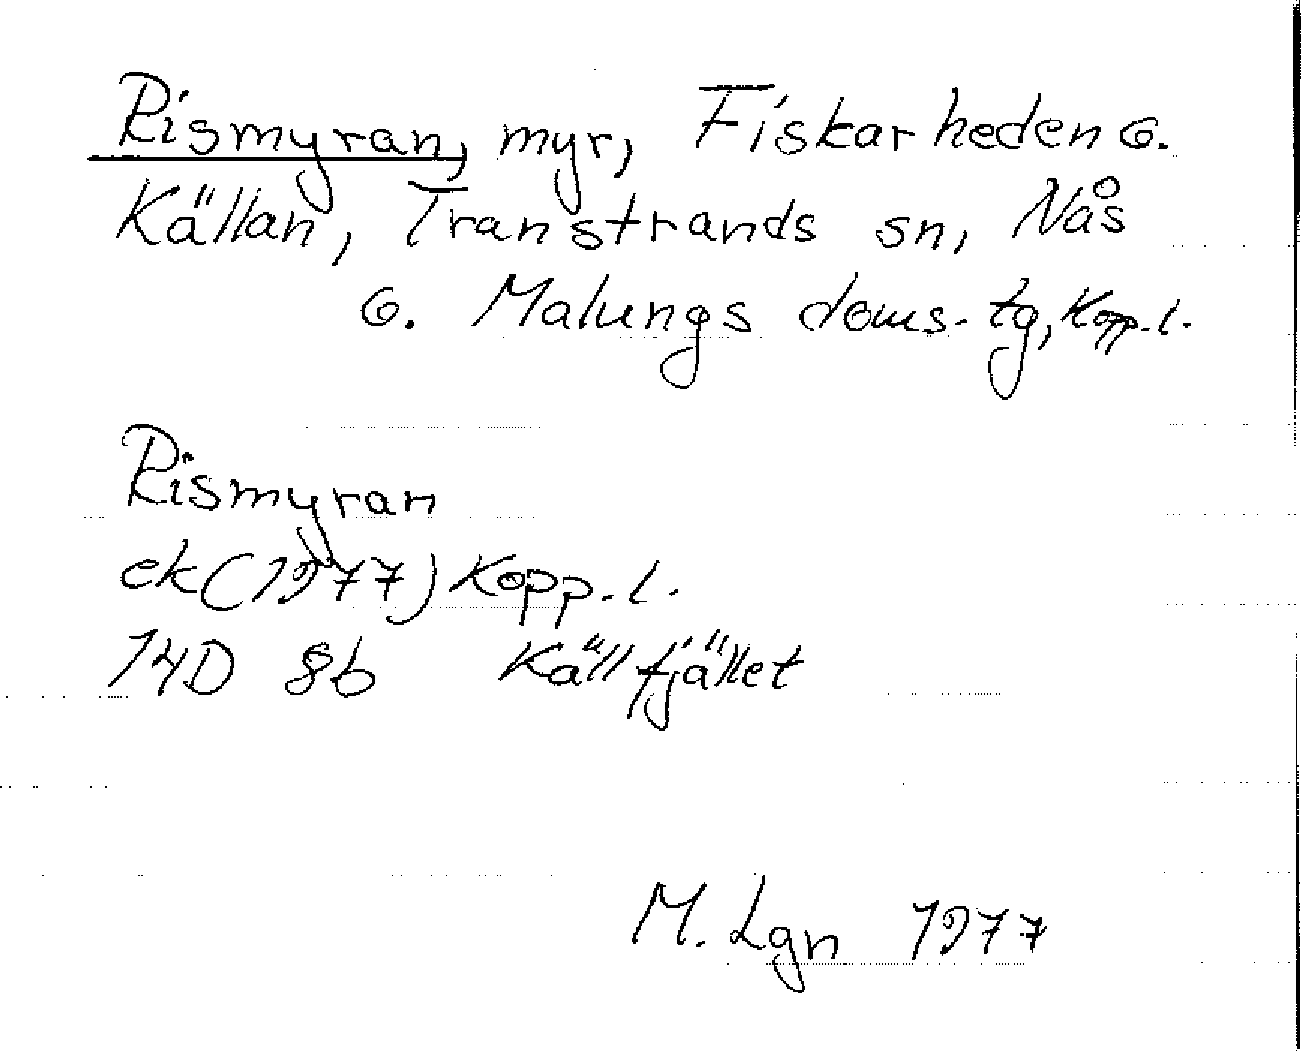 Rismyran, myr, Fiskarheden o.
Källan, Transtrands sn, Nås
o. Malungs doms. tg, Kopp. l.
Rismyran
ek (1977) Kopp. l.
14D 8b Källfjället
M. Lgn 1977